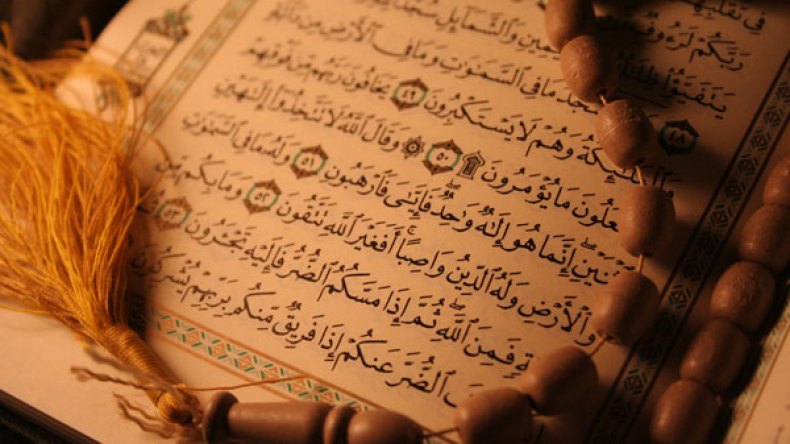 فِى تَقَلُّبِهِمْ
رَبَّكُمْ لَرَءُوفٌ
يَتَفَيَّؤُا۟ ظِلَٰلُهُ مِينِ وَٱلشَّمَآئِلِ سُجَّدًا
٤٨ جُدُ مَا فِى ٱلسَّمَٰوَٰتِ وَمَا فِى ٱلْأَرْضِ مِن دَآبَّةٍ
وَٱلْمَلَٰٓئِكَةُ وَهُمْ لَا يَسْتَكْبِرُونَ ٤٩ يَخَافُونَ رَبَّهُم مِّن فَوْقِهِمْ
عَلُونَ مَا يُؤْمَرُونَ ۩ ٥٠ ۞ وَقَالَ ٱللَّهُ لَا تَتَّخِذُوٓا۟ إِلَٰهَيْنِ
نَيْنِ ۖ إِنَّمَا هُوَ إِلَٰهٌ وَٰحِدٌ ۖ فَإِيَّٰىَ فَٱرْهَبُونِ ٥١ وَلَهُۥ مَا فِى ٱلسَّمَٰوَٰتِ
وَٱلْأَرْضِ وَلَهُ ٱلدِّينُ وَاصِبًا ۚ أَفَغَيْرَ ٱللَّهِ تَتَّقُونَ ٥٢ وَمَا بِكُم مِّن
ةٍ فَمِنَ ٱللَّهِ ۖ ثُمَّ إِذَا مَسَّكُمُ ٱلضُّرُّ فَإِلَيْهِ تَجْـَٔرُونَ ٥٣
فَ ٱلضُّرَّ عَنكُمْ إِذَا فَرِيقٌ مِّنكُم بِرَبِّهِمْ يُشْرِكُونَ